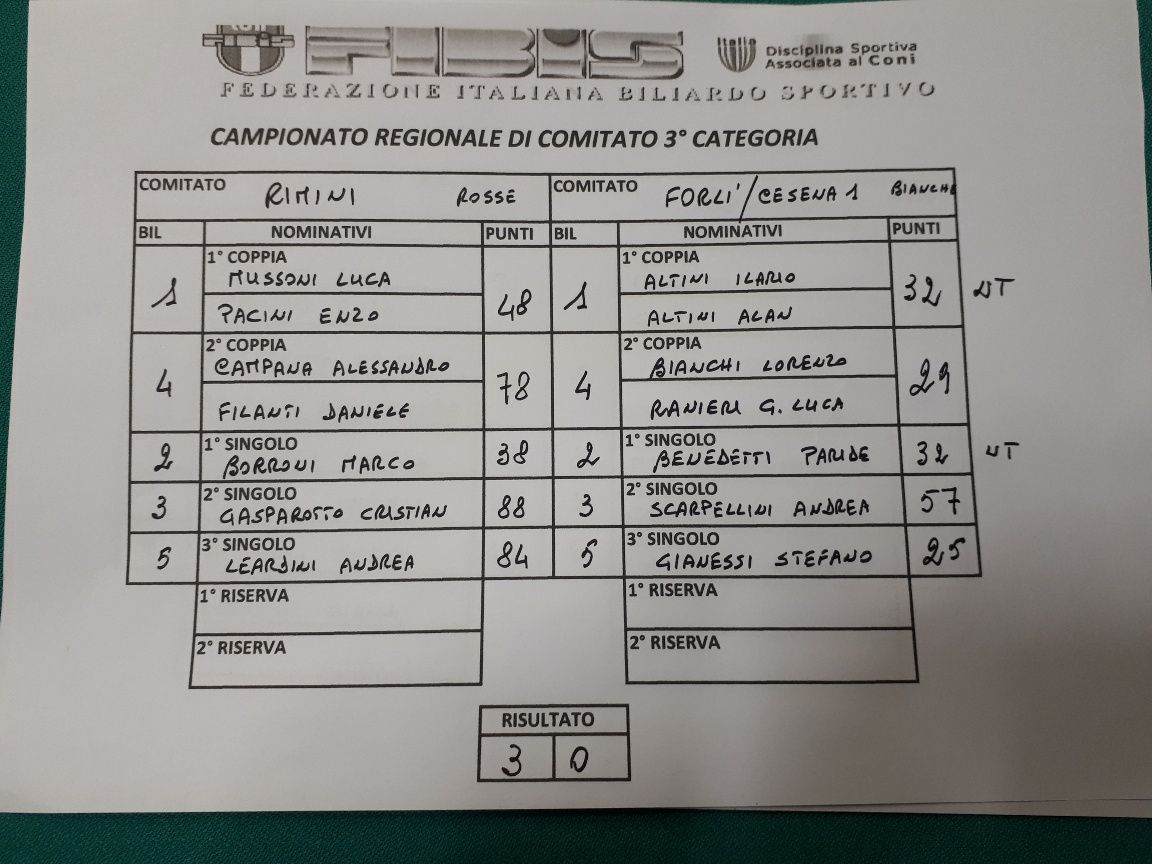 FIBIS
Italia
Disciplina Sportiva
Associata al Coni
FEDERAZIONE ITALIANA BILIARDO SPORTIVO
CAMPIONATO REGIONALE DI COMITATO 3° CATEGORIA
COMITATO RIMINI ROSSE COMITATO FORLI'/CESENA 1 BIANCHE
BIL NOMINATIVI PUNTI BIL NOMINATIVI PUNTI
1° COPPIA 1° COPPIA
1 MUSSONI LUCA 48 1 ALTINI ILARIO 32 NT
PACINI ENZO ALTINI ALAN
2° COPPIA 2° COPPIA
4 CAMPANA ALESSANDRO 78 4 BIANCHI LORENZO 29
FILANTI DANIELE RANIERI G. LUCA
1° SINGOLO 1° SINGOLO
2 BORRONI MARCO 38 2 BENEDETTI PARIDE 32 NT
2° SINGOLO 2° SINGOLO
3 GASPAROTTO CRISTIAN 88 3 SCARPELLINI ANDREA 57
3° SINGOLO 3° SINGOLO
5 LEARDINI ANDREA 84 5 GIANESSI STEFANO 25
1° RISERVA 1° RISERVA
2° RISERVA 2° RISERVA
RISULTATO
3 0